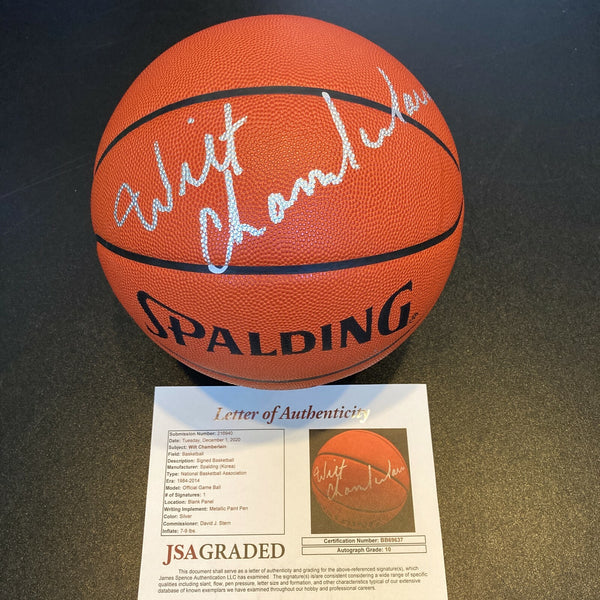 Wilt
Chamberlain
SPALDING
Letter of Authenticity
Submission Number: 210940
Date: Tuesday, December 1, 2020
Subject: Wilt Chamberlain
Field: Basketball
Description: Signed Basketball
Manufacturer: Spalding (Korea)
Type: National Basketball Association
Era: 1984-2014
Model: Official Game Ball
# of Signatures: 1
Location: Blank Panel
Writing Implement: Metallic Paint Pen
Color: Silver
Commissioner: David J. Stern
Inflate: 7-9 lbs.
Wilt
Chamberlain
Certification Number: BB69637
Autograph Grade: 10
JSAGRADED
This document shall serve as a letter of authenticity and grading for the above-referenced signature(s), which
James Spence Authentication LLC has examined. The signature(s) is/are consistent considering a wide range of specific
qualities including slant, flow, pen pressure, letter size and formation, and other characteristics typical of our extensive
database of known exemplars we have examined throughout our hobby and professional careers.